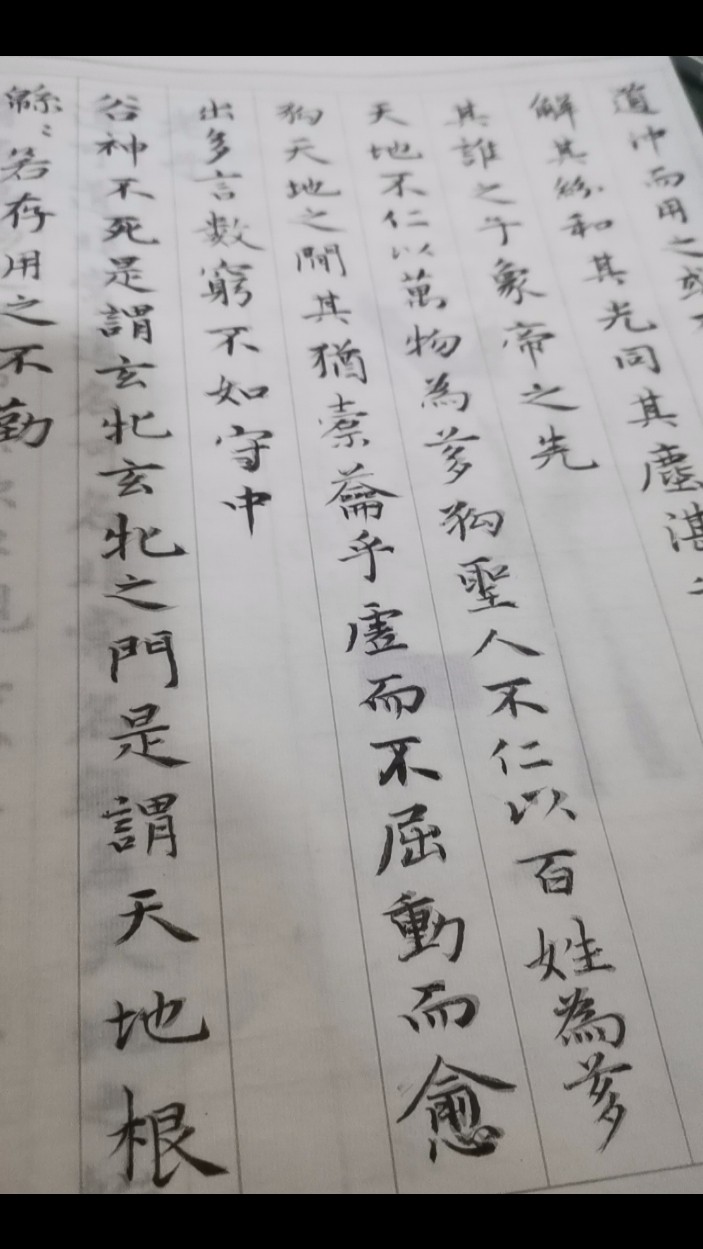 道沖而用之或不
解其紛和其光同其塵湛
其誰之子象帝之先
天地不仁以萬物為芻狗聖人不仁以百姓為芻
狗天地之間其猶橐蘥乎虛而不屈動而愈
出多言數窮不如守中
谷神不死是謂玄牝玄牝之門是謂天地根
緜〻若存用之不勤